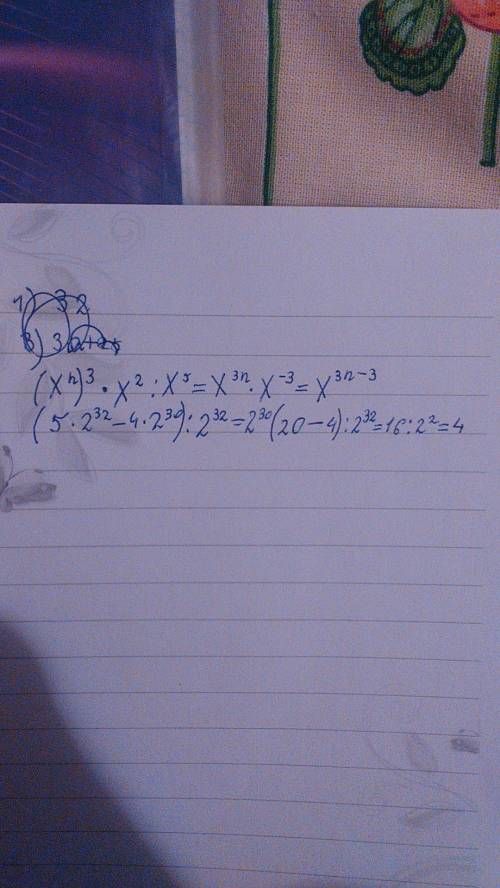 1) 32
3) 3
(x^n)^3 · x^2 : x^5 = x^{3n} · x^{-3} = x^{3n-3}
(5 · 2^{32} - 4 · 2^{30}) : 2^{32} = 2^{30}(20 - 4) : 2^{32} = 16 : 2^2 = 4